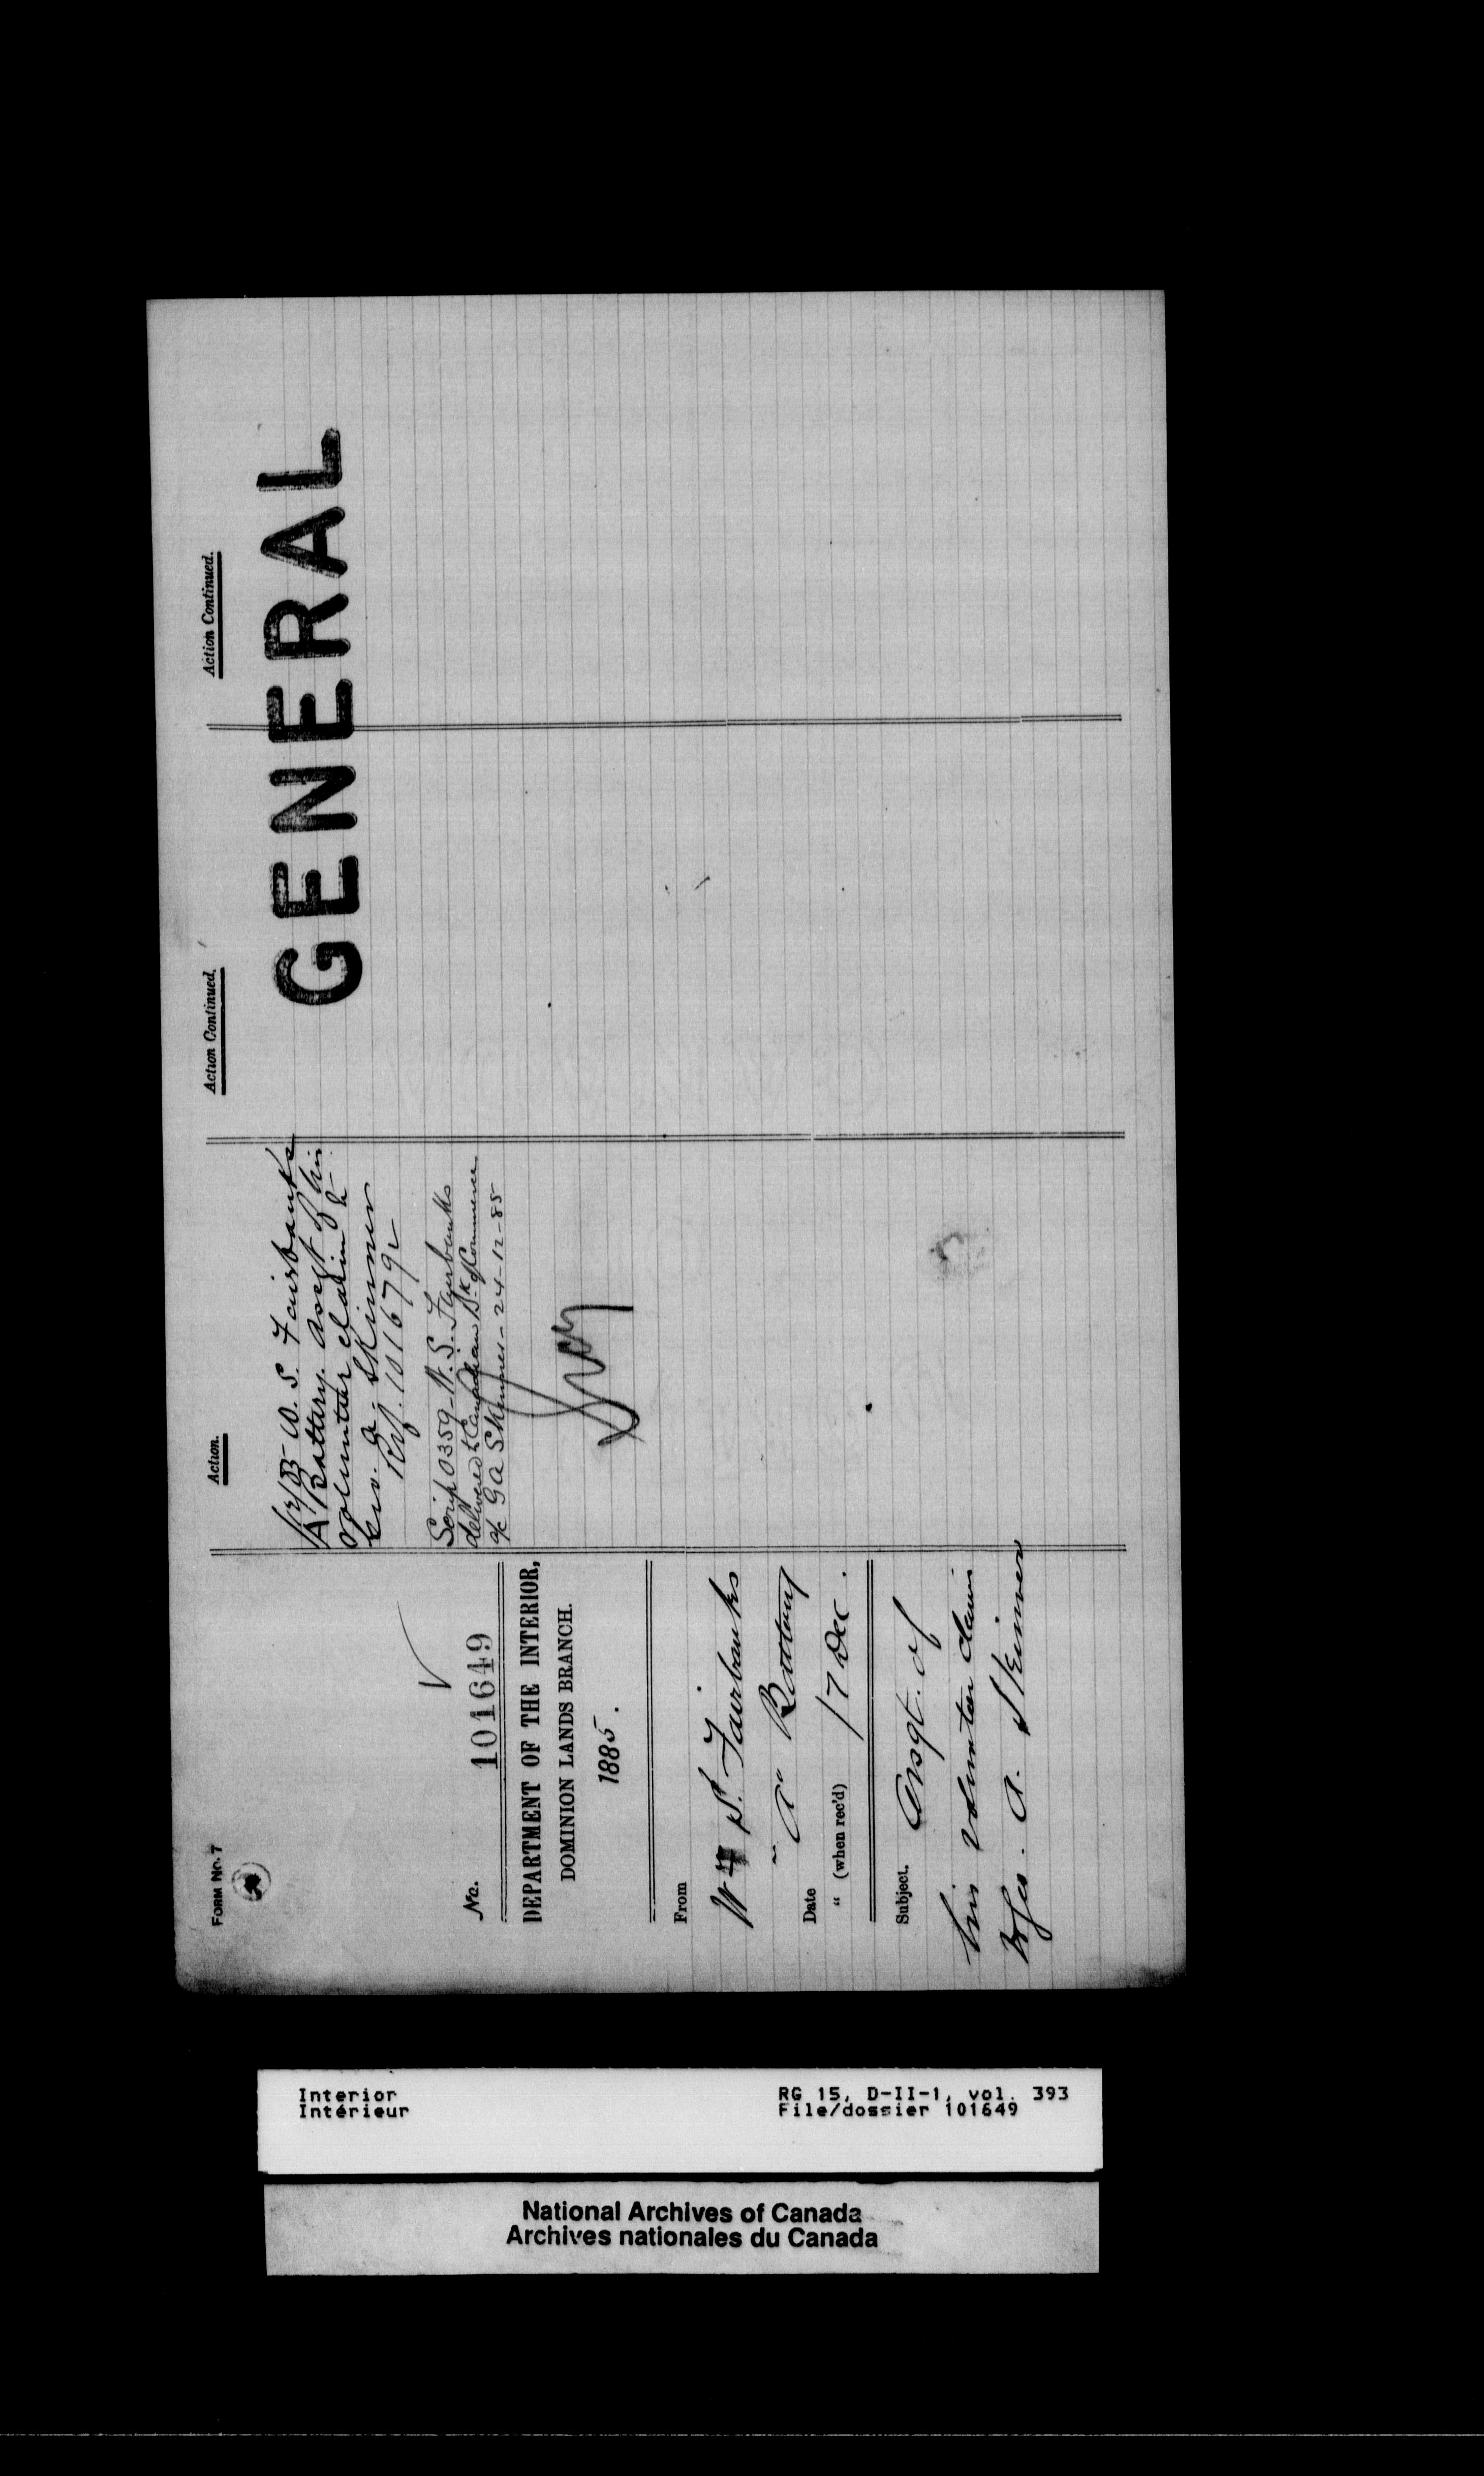 FORM No. 7
No. 101649
DEPARTMENT OF THE INTERIOR,
DOMINION LANDS BRANCH.
1885.
From
W S. Fairbanks
"A" Battery
Date
" (when rec'd) 17 Dec.
Subject. Assgt. of
his volunteer claim
to Geo. A. Skinner
Action.
W. S. Fairbanks
A Battery. Assgt of his
volunteer claim to
Geo. A. Skinner
Ref. 101679
Scrip 0359 - W. S. Fairbanks
delivered to Canadian Bk of Commerce
a/c G A Skinner - 24-12-85
Action Continued.
Action Continued.
GENERAL
Interior
Intérieur
RG 15, D-II-1, vol. 393
File/dossier 101649
National Archives of Canada
Archives nationales du Canada